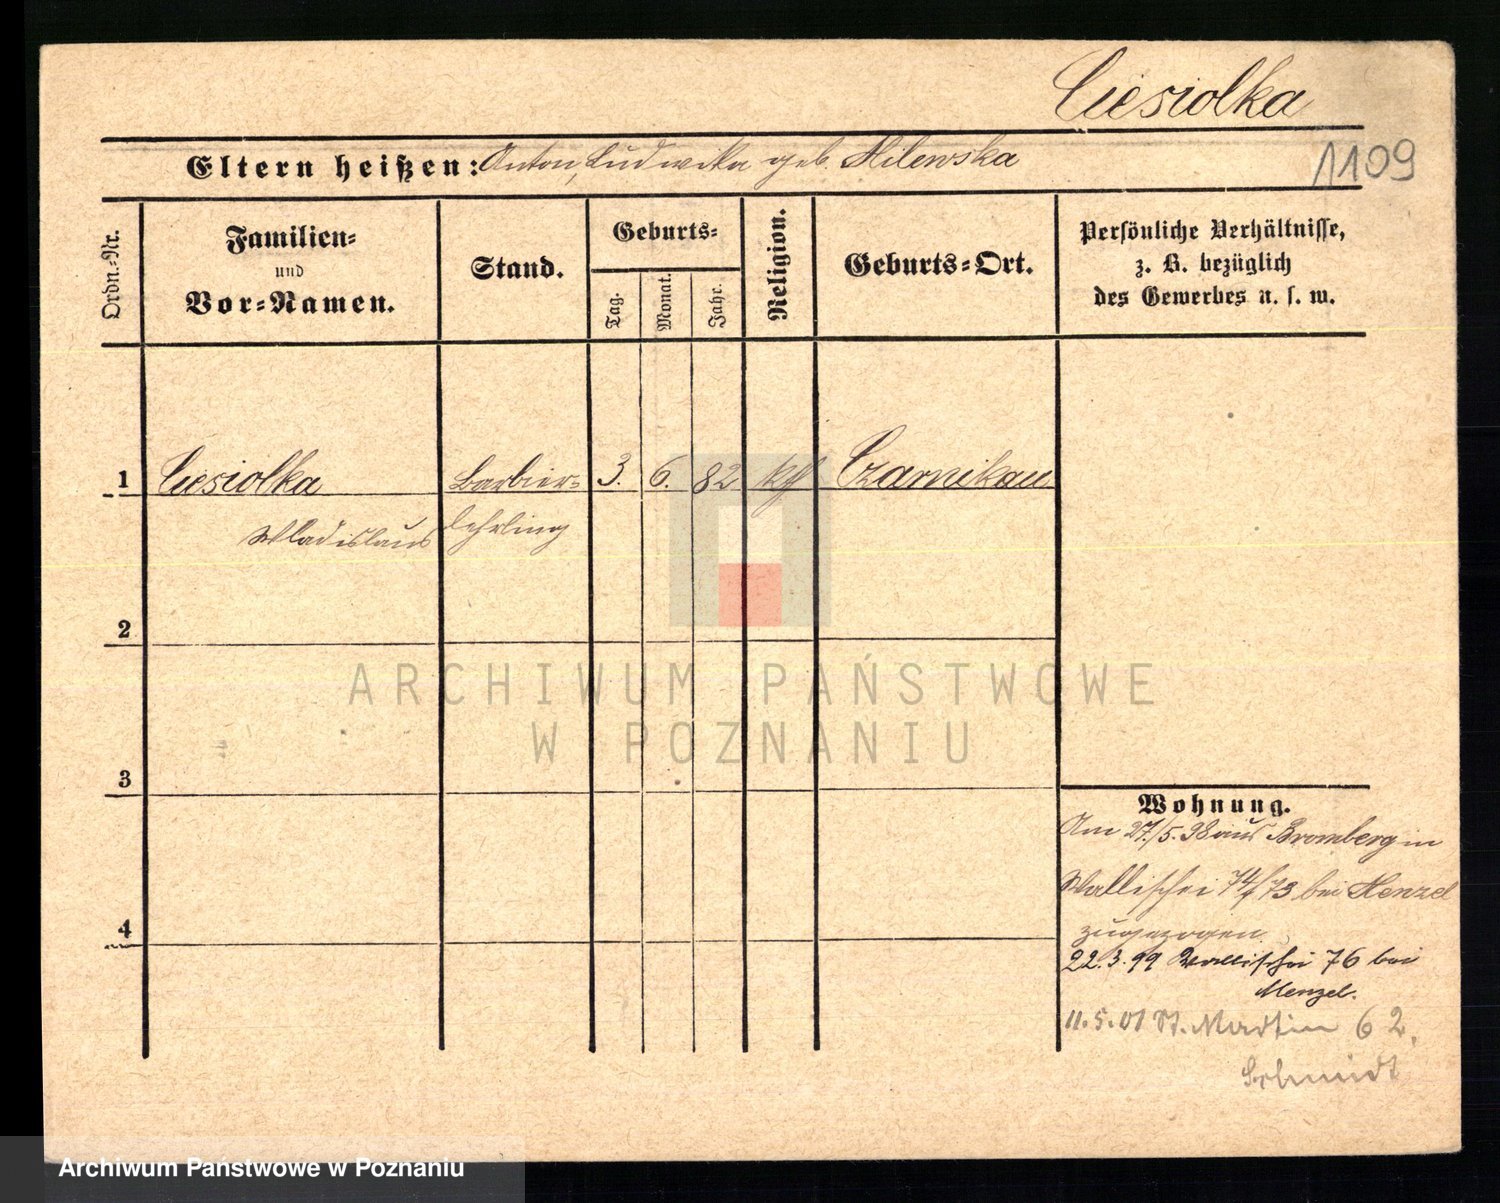 Ciesiolka
Eltern heißen: Anton, Ludwika geb. Milewska
1109
Ordn.-Nr.
Familien-
und
Vor-Namen.
Stand.
Geburts-
Tag.
Monat.
Jahr.
Religion.
Geburts-Ort.
Persönliche Verhältnisse,
z. B. bezüglich
des Gewerbes u. s. w.
1 Ciesiolka Barbier- 3. 6. 82 Czarnikau
Wladislaus lehrling
2
3
4
Wohnung.
Am 27./5.98 aus Bromberg in
Wallischei 74/73 bei Menzel
zugezogen
22.3.99 Wallischei 76 bei
Menzel.
11.5.01 St. Martin 62.
Schmidt
ARCHIWUM PAŃSTWOWE
W POZNANIU
Archiwum Państwowe w Poznaniu